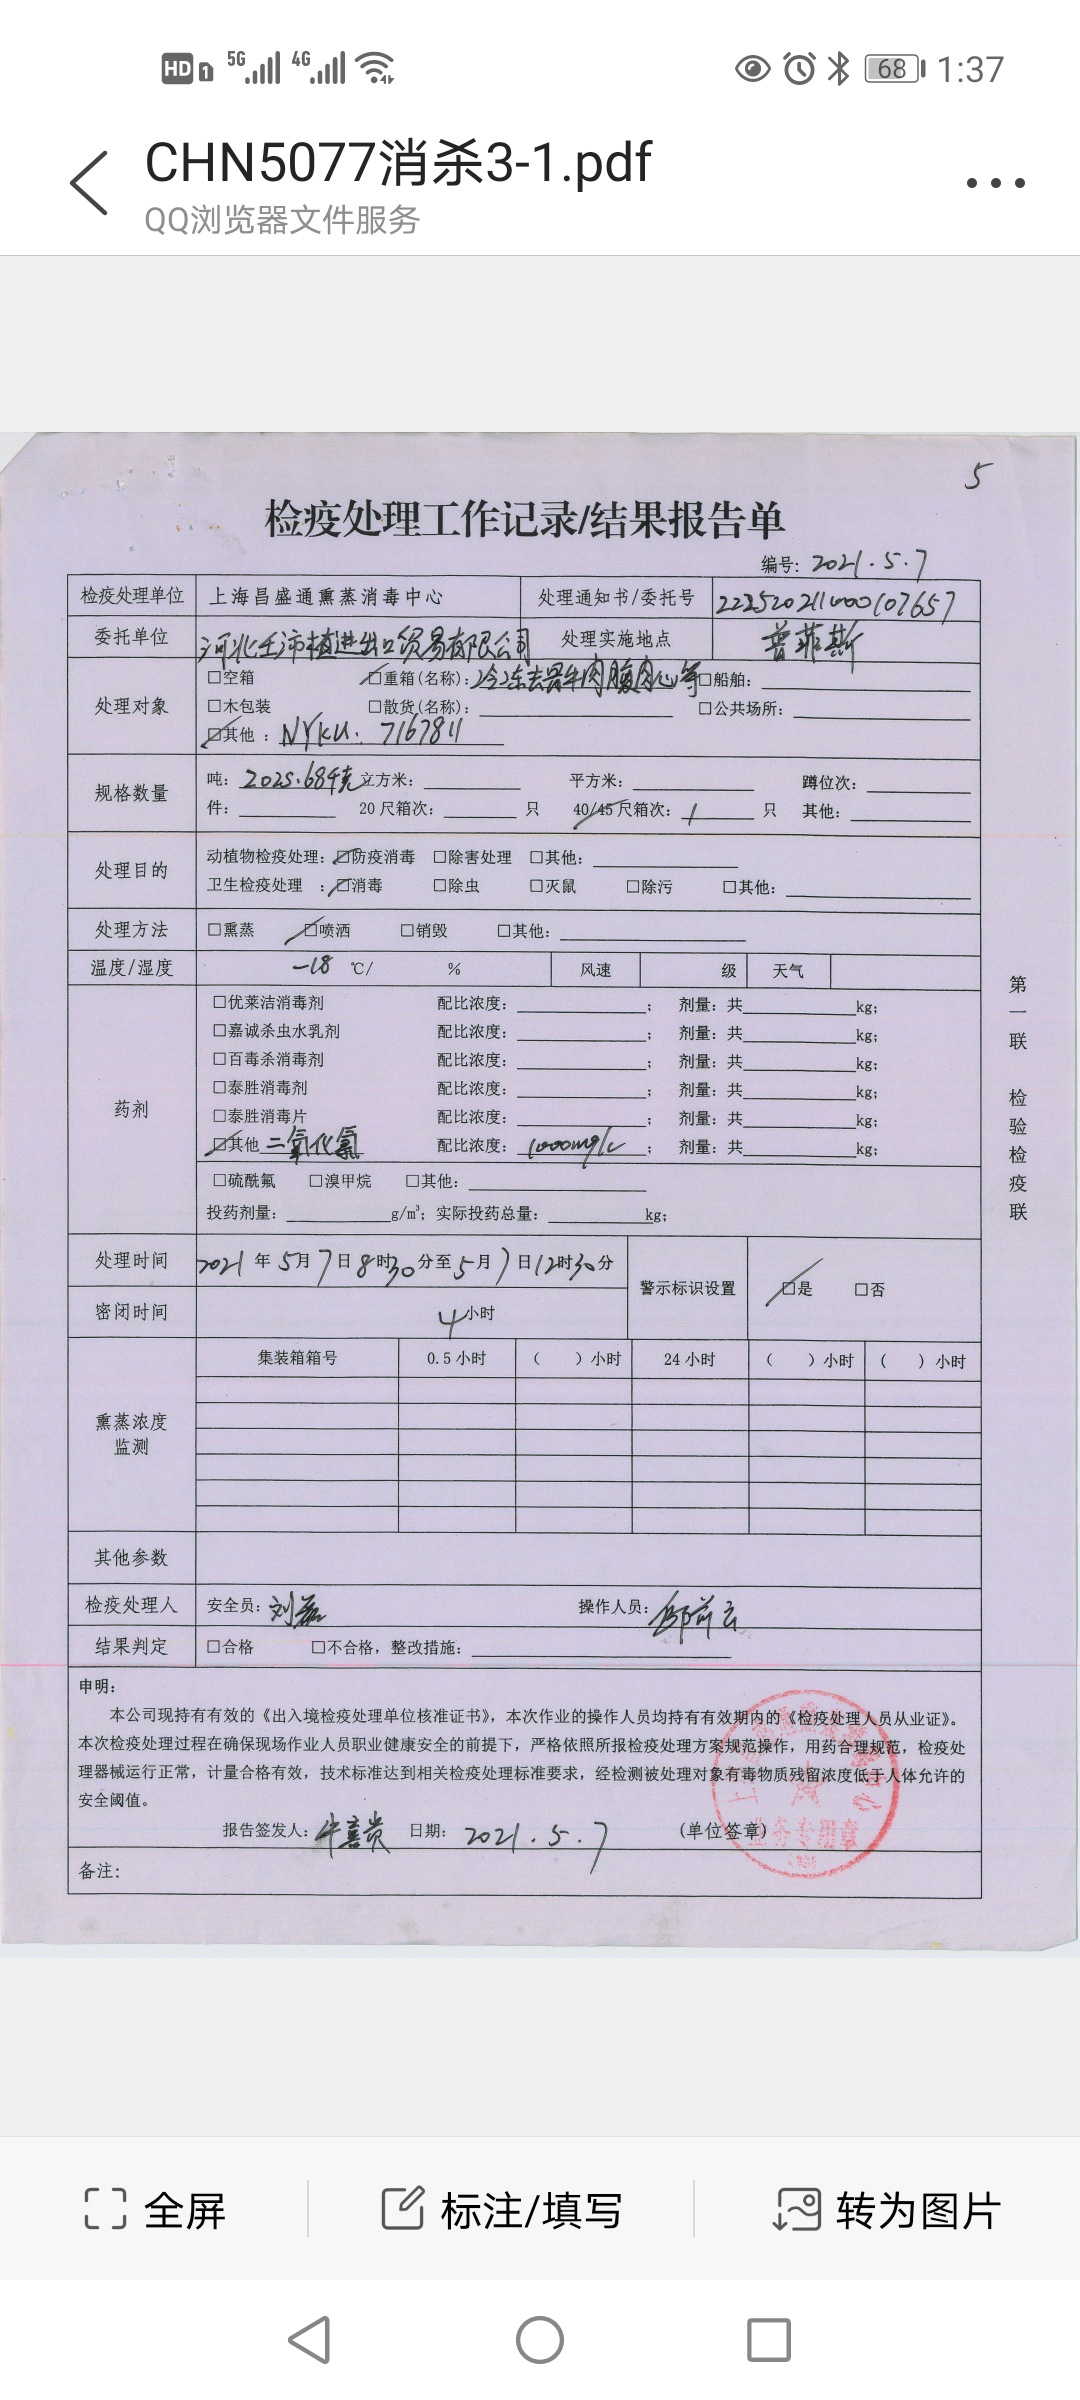 HD 1 5G 4G 68 1:37
CHN5077消杀3-1.pdf
QQ浏览器文件服务
5
检疫处理工作记录/结果报告单
编号: 2021.5.7
检疫处理单位 上海昌盛通熏蒸消毒中心 处理通知书/委托号
委托单位 进出口贸易有限公司 处理实施地点 普菲斯
处理对象
□空箱 □重箱(名称): 冷冻去骨牛肉腹肉心等 □船舶:
□木包装 □散货(名称): □公共场所:
□其他 : NYKU: 7167811
规格数量
吨: 2025.684千克 立方米: 平方米: 蹲位次:
件: 20 尺箱次: 只 40/45 尺箱次: 1 只 其他:
处理目的
动植物检疫处理: □防疫消毒 □除害处理 □其他:
卫生检疫处理 : □消毒 □除虫 □灭鼠 □除污 □其他:
处理方法 □熏蒸 □喷洒 □销毁 □其他:
温度/湿度 -18 ℃/ % 风速 级 天气
药剂
□优莱洁消毒剂 配比浓度: ; 剂量: 共 kg;
□嘉诚杀虫水乳剂 配比浓度: ; 剂量: 共 kg;
□百毒杀消毒剂 配比浓度: ; 剂量: 共 kg;
□泰胜消毒剂 配比浓度: ; 剂量: 共 kg;
□泰胜消毒片 配比浓度: ; 剂量: 共 kg;
□其他 二氧化氯 配比浓度: 1000mg/L ; 剂量: 共 kg;
□硫酰氟 □溴甲烷 □其他:
投药剂量: g/m³; 实际投药总量: kg;
处理时间 2021 年 5月 7日 8时30分至 5月 7日12时30分
警示标识设置 □是 □否
密闭时间 4小时
熏蒸浓度
监测
集装箱箱号 0.5 小时 ( ) 小时 24 小时 ( ) 小时 ( ) 小时
其他参数
检疫处理人 安全员: 刘磊 操作人员:
结果判定 □合格 □不合格, 整改措施:
申明:
本公司现持有有效的《出入境检疫处理单位核准证书》, 本次作业的操作人员均持有有效期内的《检疫处理人员从业证》。
本次检疫处理过程在确保现场作业人员职业健康安全的前提下, 严格依照所报检疫处理方案规范操作, 用药合理规范, 检疫处
理器械运行正常, 计量合格有效, 技术标准达到相关检疫处理标准要求, 经检测被处理对象有毒物质残留浓度低于人体允许的
安全阈值。
报告签发人: 牛喜贵 日期: 2021.5.7 (单位签章)
业务专用章
备注:
第一联 检验检疫联
全屏 标注/填写 转为图片